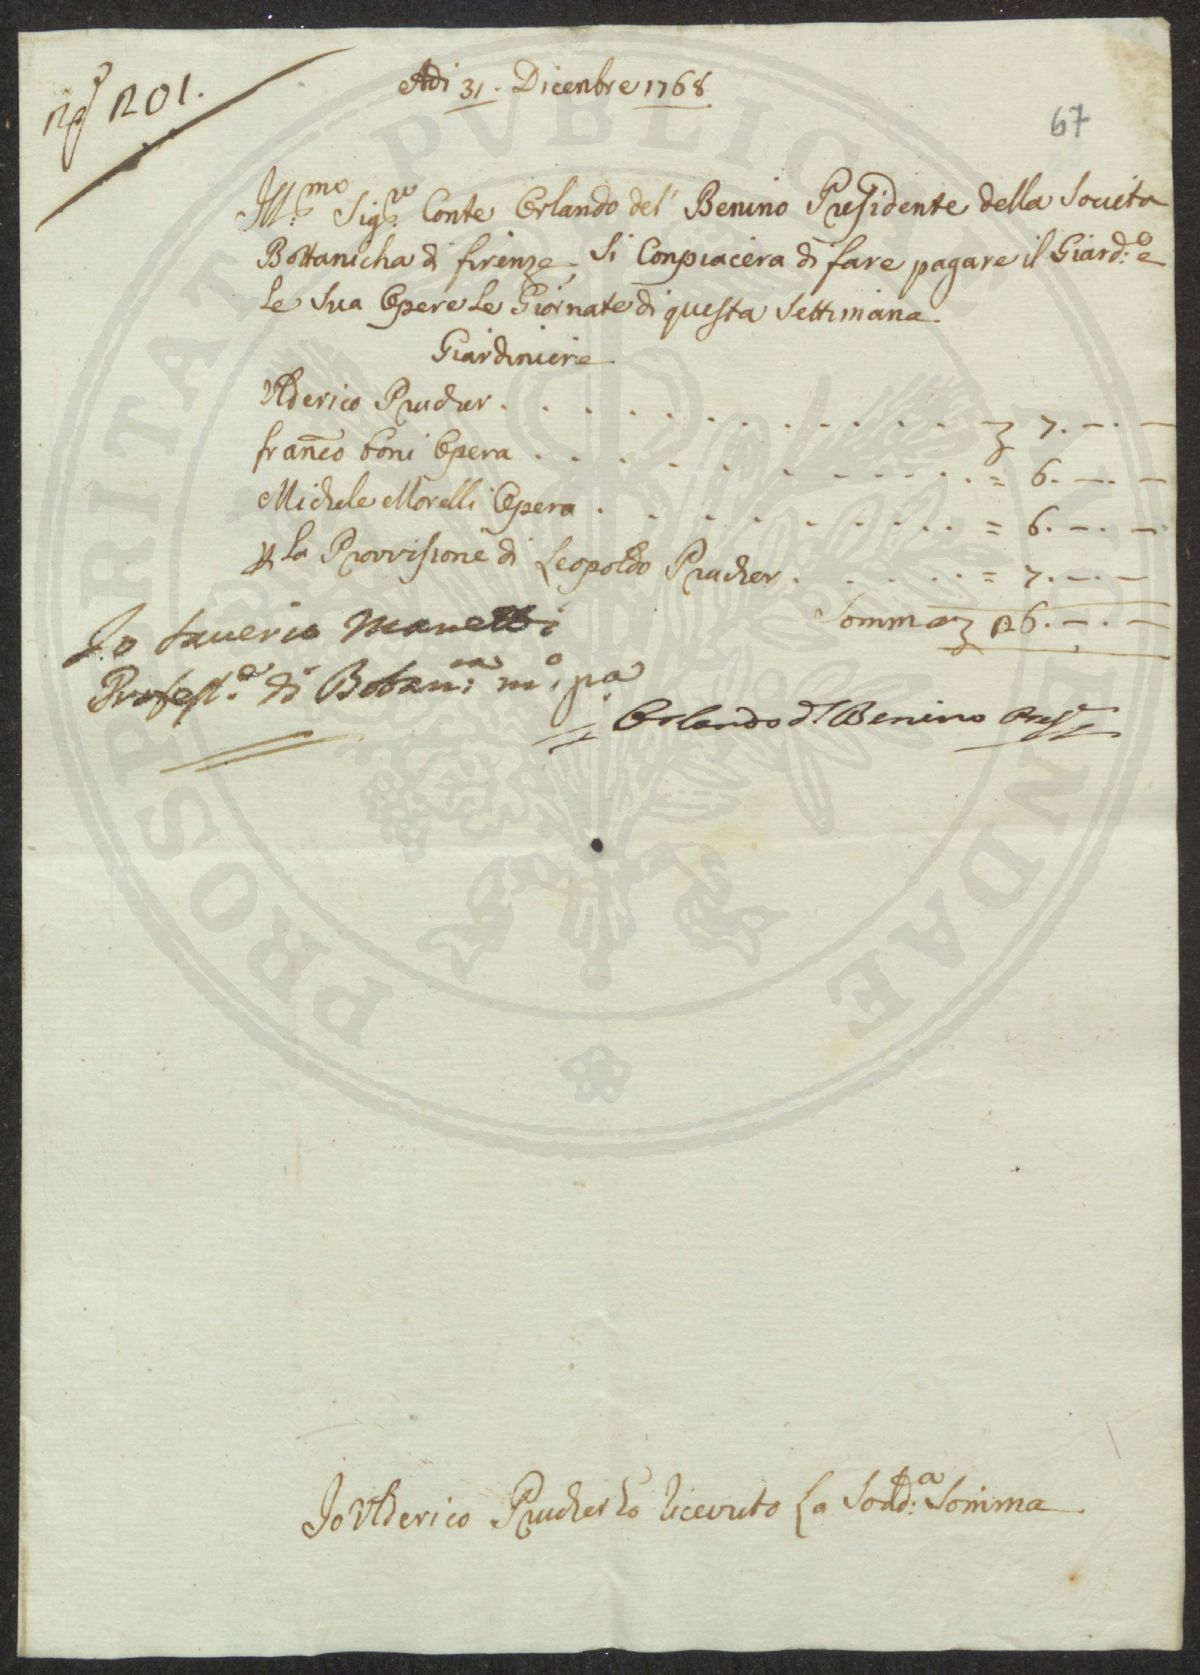 N.º 201.
Adi 31. Dicenbre 1768
67
Ill.mo Sig.re Conte Orlando del' Benino Presidente della Societa
Bottanicha di firenze, Si Conpiacera di fare pagare il Giard:o e
le Sua Opere Le Giornate di questa Settimana.
Giardiniere
Ulderico Prucher . . . . . . . . . . . . 7. –. –
Fran.co boni Opera . . . . . . . . . . . = 6. –. –
Michele Morelli Opera . . . . . . . . . . = 6. –. –
La Provvisione di Leopoldo Prucher . . . . . . = 7. –. –
Somma 26. –. –
Io Saverio Manetti
Profess.e di Botan:ca m.o p.a
Orlando d'l Benino Pres.e
Io Ulderico Prucher ho ricevuto La Sodd:a Somma
PROSPERITATI PVBLICAE AVGENDAE